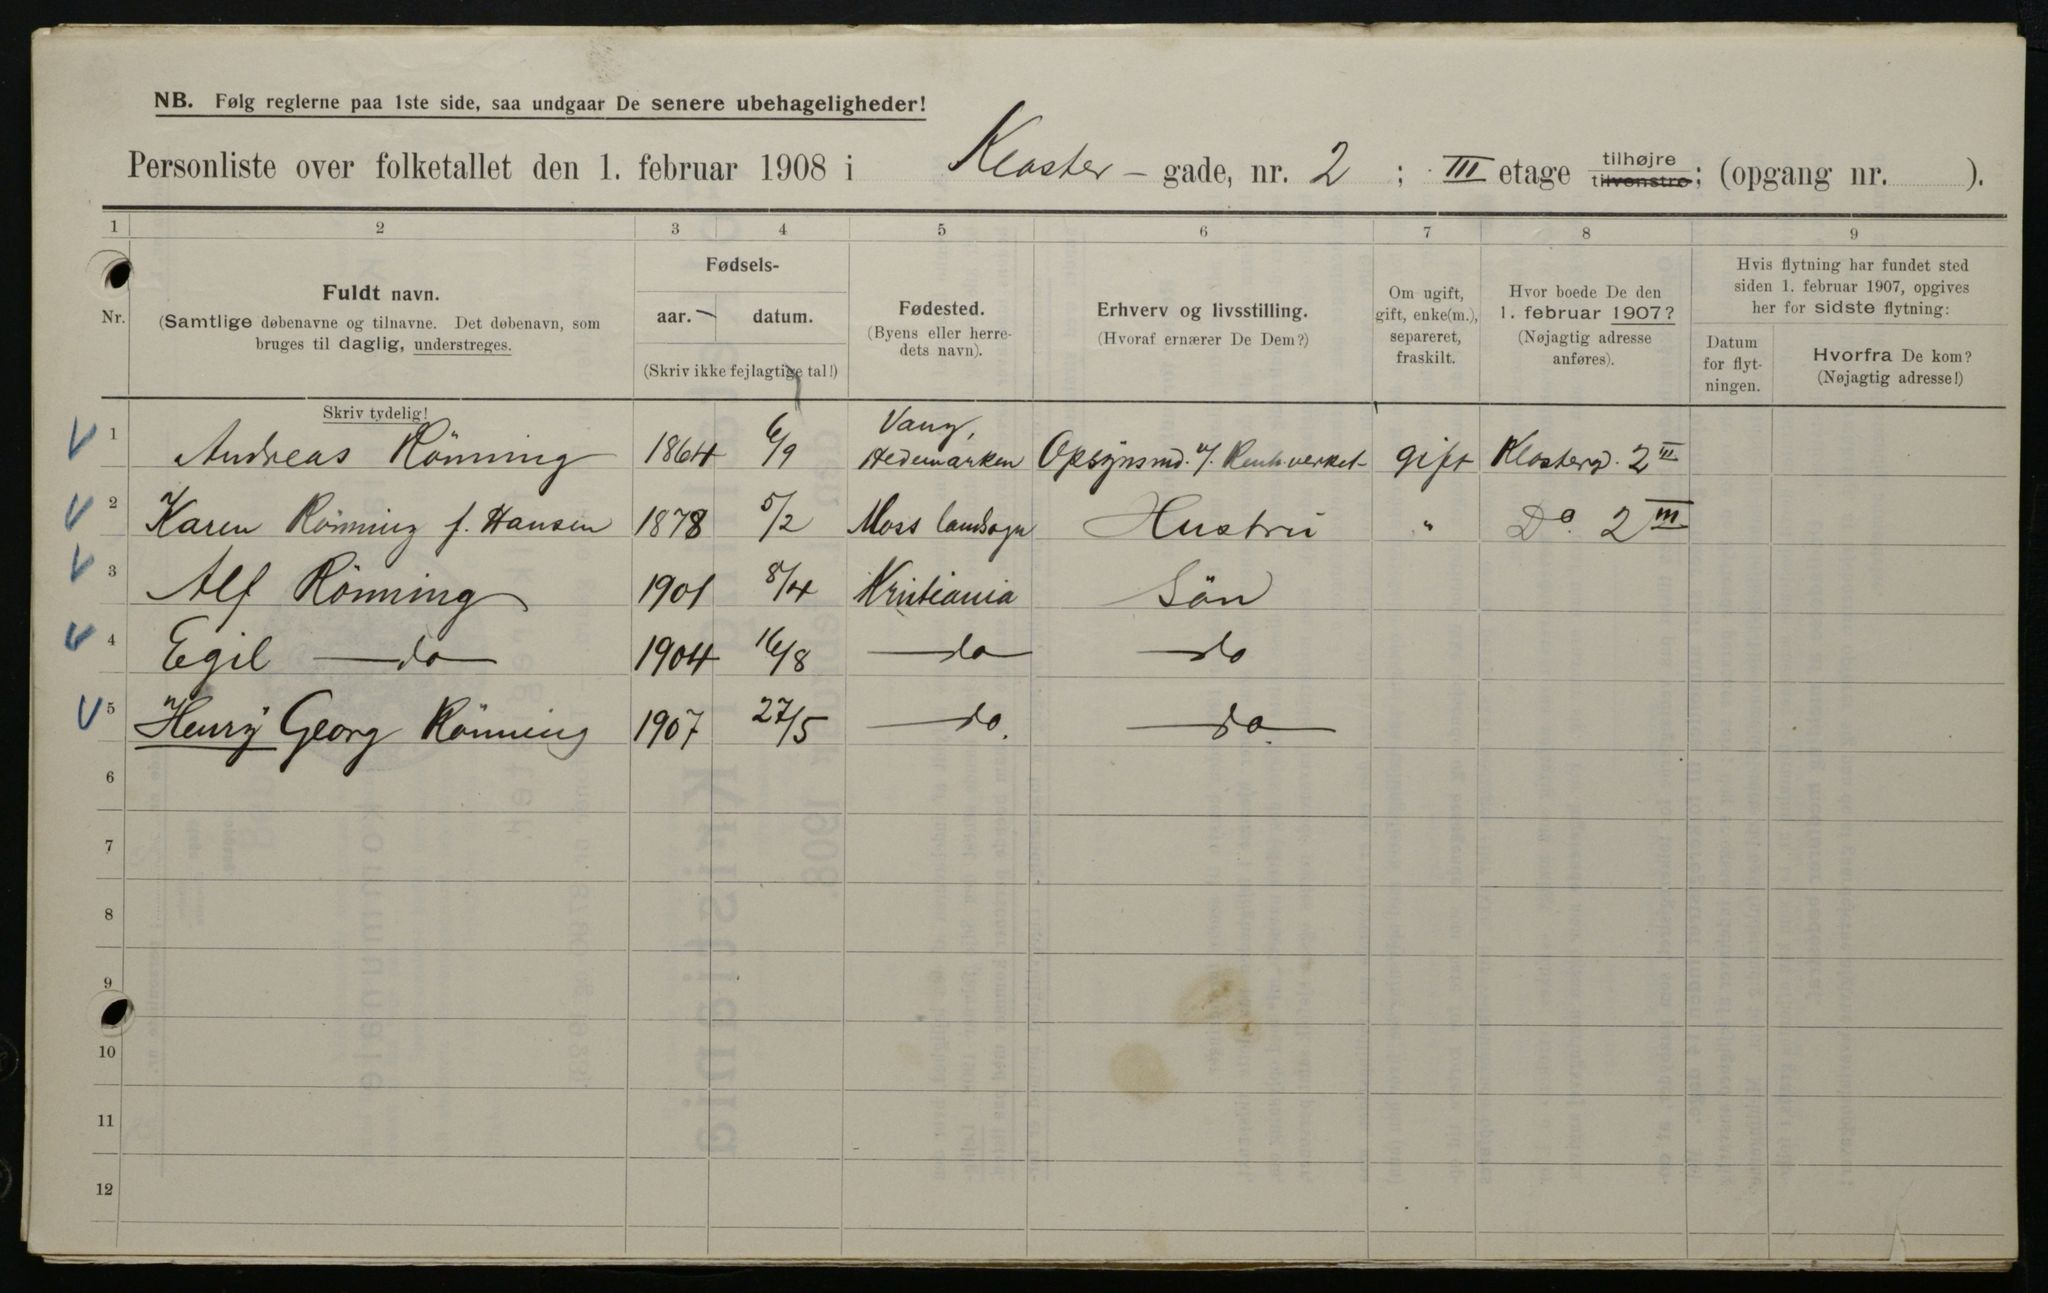 NB. Følg reglerne paa 1ste side, saa undgaar De senere ubehageligheder!
Personliste over folketallet den 1. februar 1908 i Kloster – gade, nr. 2 ; III etage tilhøjre tilvenstre; (opgang nr. ).
1 2 3 4 5 6 7 8 9
Nr.
Fuldt navn.
(Samtlige døbenavne og tilnavne. Det døbenavn, som
bruges til daglig, understreges.
Skriv tydelig!
Fødsels-
aar. – datum.
(Skriv ikke fejlagtige tal!)
Fødested.
(Byens eller herre-
dets navn).
Erhverv og livsstilling.
(Hvoraf ernærer De Dem?)
Om ugift,
gift, enke(m.),
separeret,
fraskilt.
Hvor boede De den
1. februar 1907?
(Nøjagtig adresse
anføres).
Hvis flytning har fundet sted
siden 1. februar 1907, opgives
her for sidste flytning:
Datum
for flyt-
ningen.
Hvorfra De kom?
(Nøjagtig adresse!)
1 Andreas Rönning 1864 6/9 Vang, Hedemarken Opsynsmd. v/. Renh.verket gift Klosterg. 2 III
2 Karen Rönning f. Hansen 1878 5/2 Moss landsogn Hustru " Do. 2 III
3 Alf Rönning 1901 8/4 Kristiania Sön
4 Egil — do — 1904 16/8 — do — — do
5 Henry Georg Rönning 1907 27/5 — do. — do. —
6
7
8
9
10
11
12